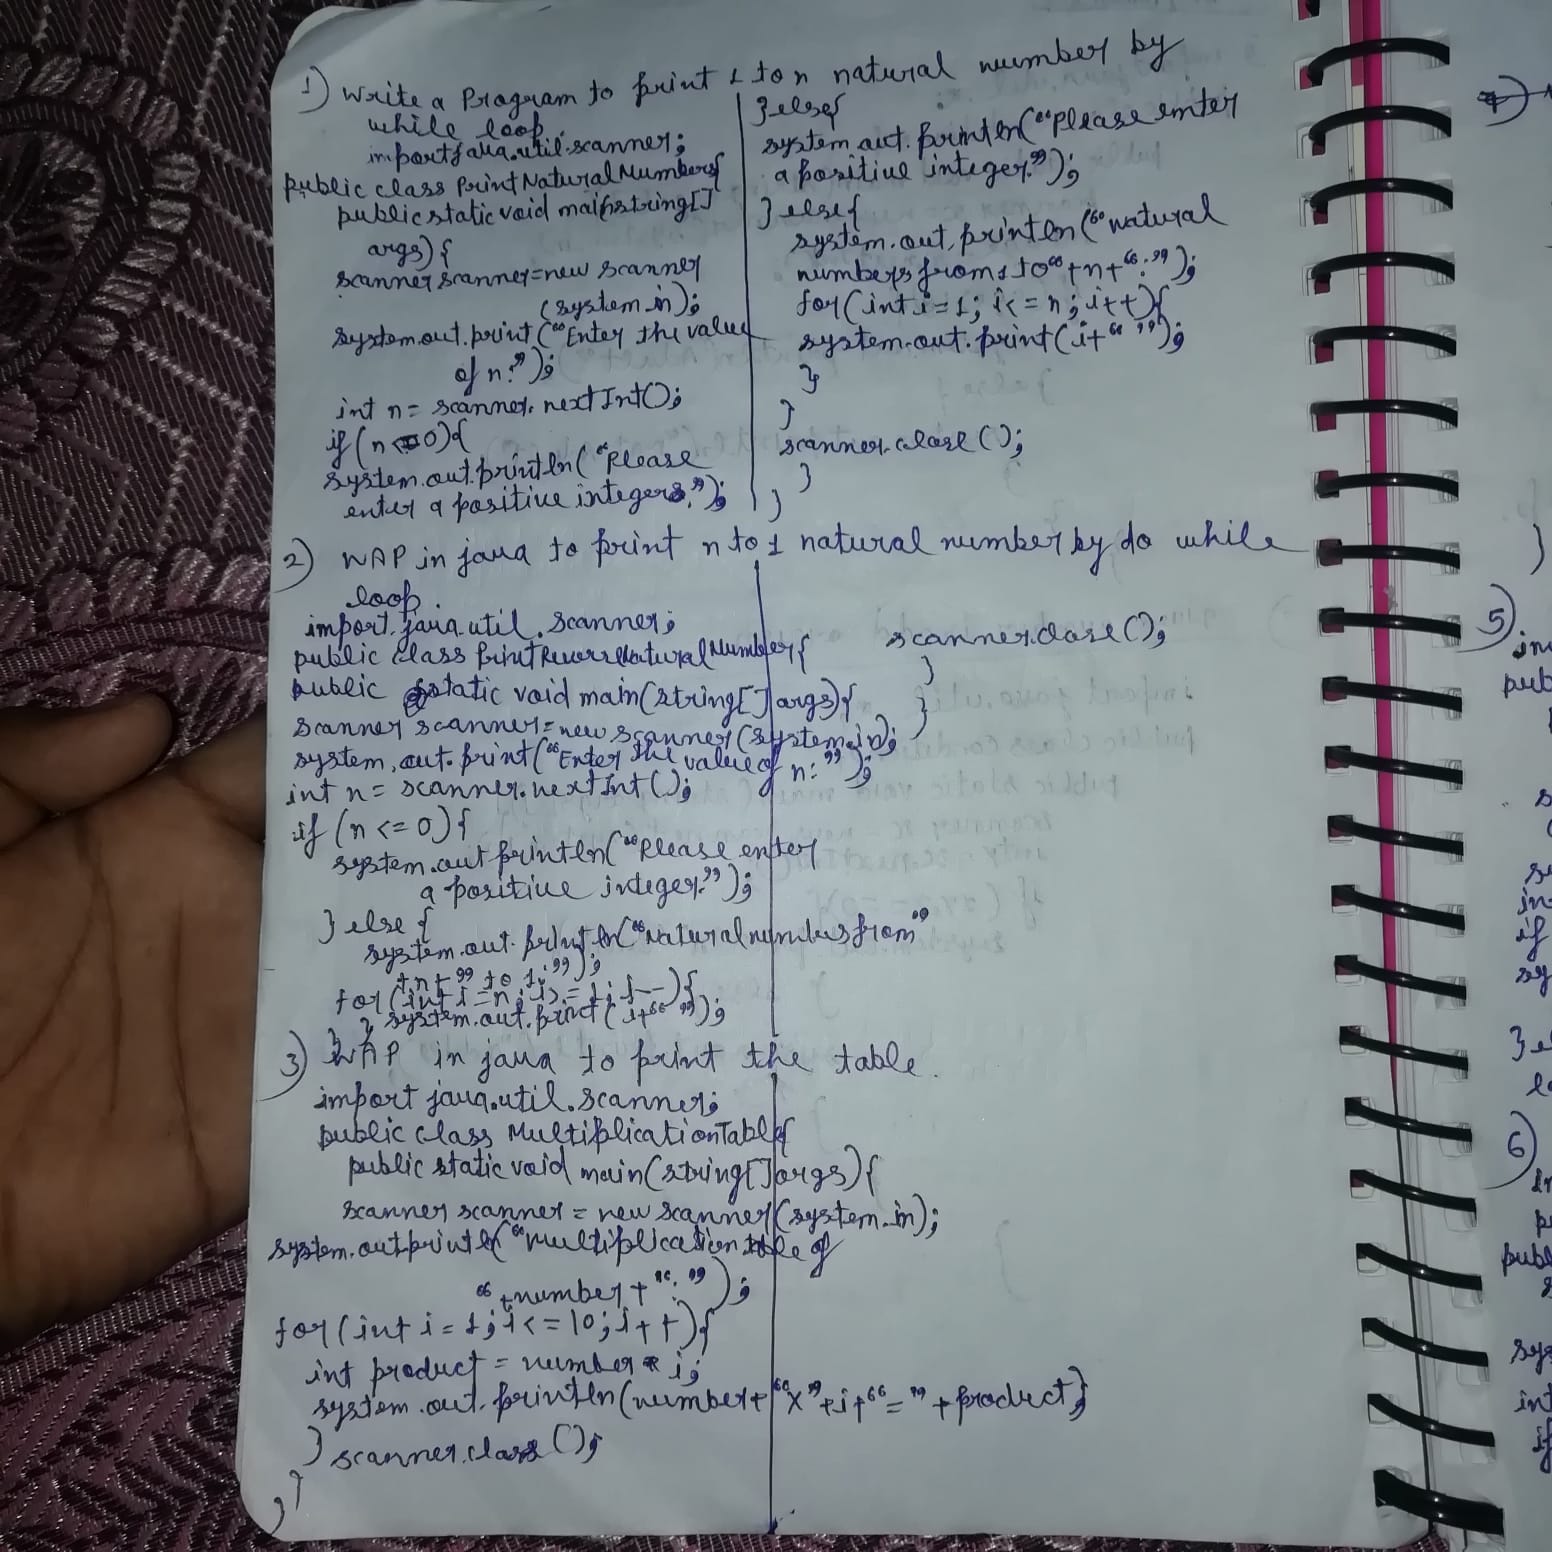 1) Write a Program to print 1 to n natural number by
while loop.
import java.util.scanner;
public class PrintNaturalNumbers{
public static void main string[]
args){
scanner scanner=new scanner
(system.in);
system.out.print("Enter the value
of n:");
int n= scanner.nextInt();
if (n<=0){
system.out.println("Please
enter a positive integers.");
}else{
system.out.println("Please enter
a positive integer.");
}else{
system.out.println("natural
numbers from 1 to"+n+":");
for(int i=1; i<=n; i++){
system.out.print(i+" ");
}
}
scanner.close();
}
}
2) WAP in java to print n to 1 natural number by do while
loop.
import java.util.scanner;
public class PrintReverseNaturalNumber{
public static void main(string[] args){
scanner scanner=new scanner(system.in);
system.out.print("Enter the value of n:");
int n= scanner.nextInt();
if (n<=0){
system.out println("Please enter
a positive integer.");
} else {
system.out.println("Natural numbers from"
+n+" to 1:");
for(int i=n; i>=1; i--){
system.out.print(i+" ");
} }
scanner.close();
}
}
3) WAP in java to print the table.
import java.util.scanner;
public class MultiplicationTable{
public static void main(string[]args){
scanner scanner = new scanner(system.in);
system.out.println("multiplication table of
"+number+":");
for(int i=1; i<=10; i++){
int product = number * i;
system.out.println(number+"x"+i+"="+product}
} scanner.class();
}
}
5)
6)